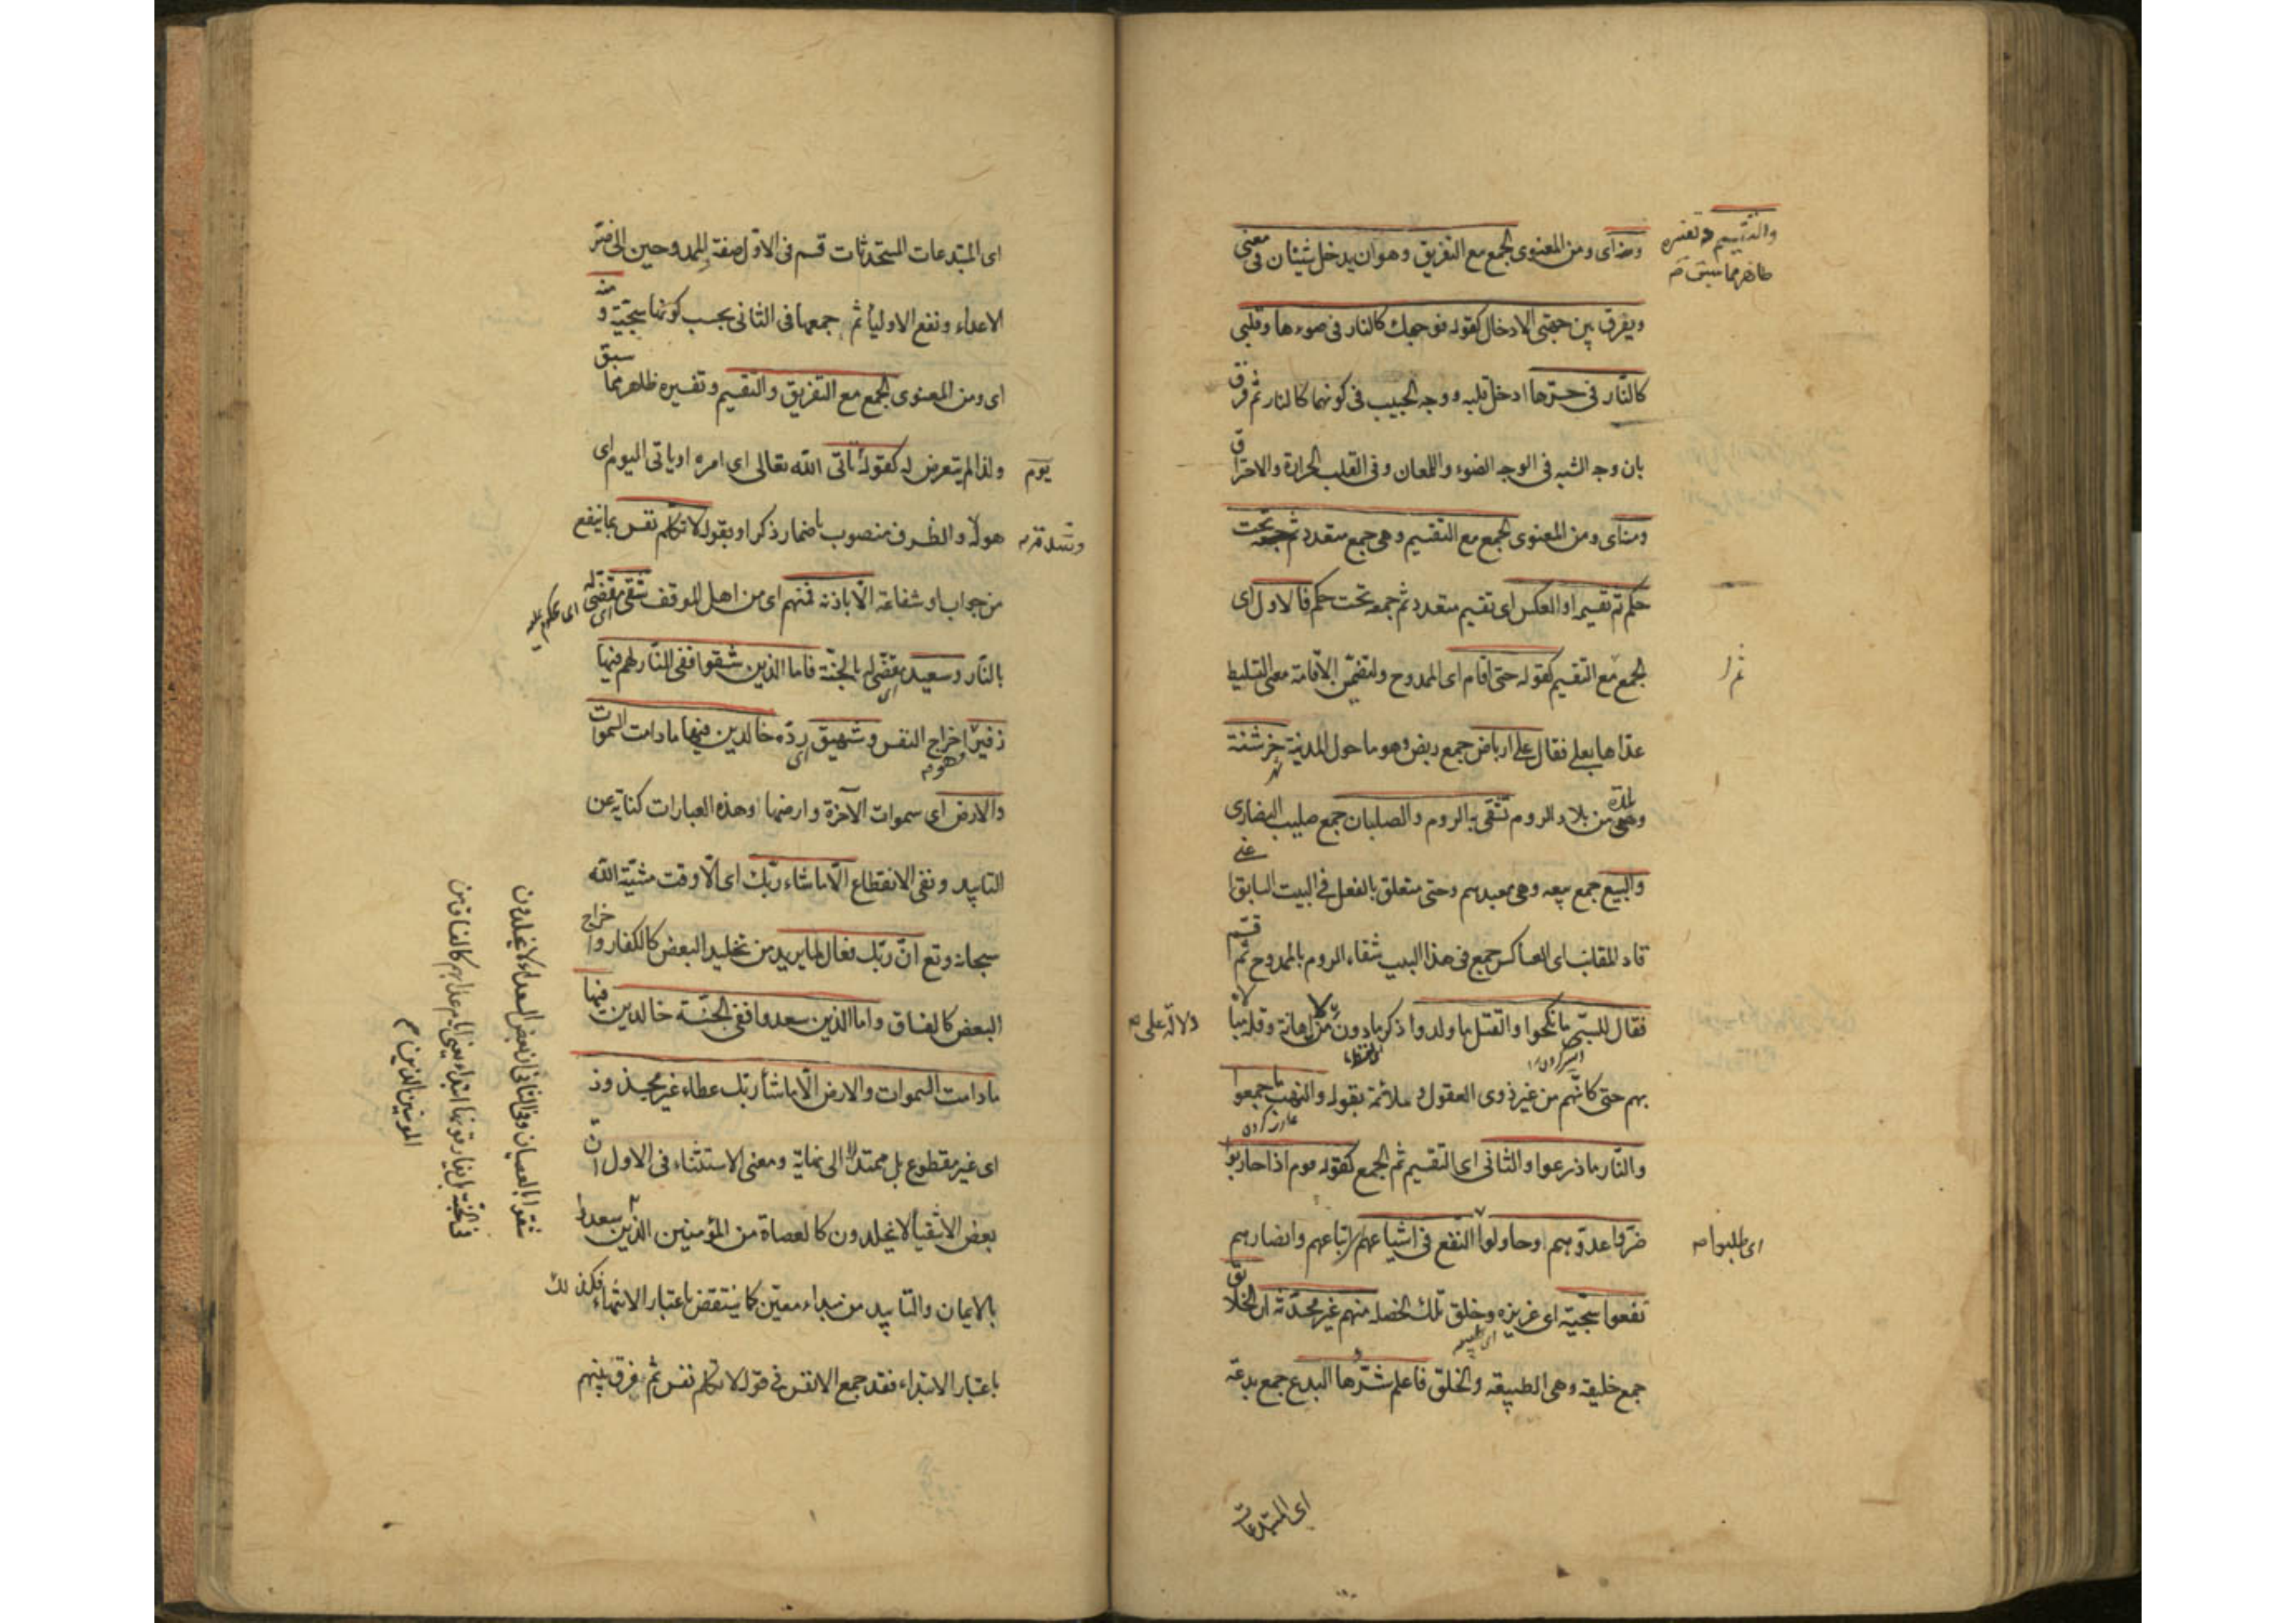 ومنه اى ومن المعنوى الجمع مع التفريق وهو ان يدخل شيئان فى معنى
ويفرق بين جهتى الادخال كقوله فوجهك كالنار فى ضوءها وقلبى
كالنار فى حرها ادخل قلبه ووجه الحبيب فى كونهما كالنار ثم فرق
بان وجه الشبه فى الوجه الضوء واللمعان وفى القلب الحرارة والاحتراق
ومنه اى ومن المعنوى الجمع مع التقسيم وهى جمع متعدد تحت
حكم ثم تقسيمه او العكس اى تقسيم متعدد ثم جمعه تحت حكم فالاول اى
الجمع مع التقسيم كقوله حتى اقام اى الممدوح ولتضمن الاقامة معنى التسليط
عداها بعلى فقال على ارباض جمع ربض وهو ما حول المدينة خرشنة
وهى بلدة من بلاد الروم تشقى به الروم والصلبان جمع صليب النصارى
والبيع جمع بيعه وهى معبدهم وحتى متعلق بالفعل فى البيت السابق اعنى
قاد المقانب اى العساكر جمع فى هذا البيت شقاء الروم بالممدوح ثم قسم
فقال للسبى ما نكحوا والقتل ما ولدوا ذكر ما دون من اهانة وقلة مبالاة
بهم حتى كانهم من غير ذوى العقول و ملائمة بقوله والنهب ما جمعوا
والنار ما زرعوا والثانى اى التقسيم ثم الجمع كقوله قوم اذا حاربوا
ضروا عدوهم او حاولوا النفع فى اشياعهم اتباعهم وانصارهم
نفعوا سجية اى غريزه وخلق تلك الخصلة منهم غير محدثة ان الخلائق
جمع خليقة وهى الطبيعة والخلق فاعلم شرها البدع جمع بدعة
والتقسيم وتفسيره
ظاهر مما سبق
دلالة على
اى طلبوا
اى المبتدعات
اى المبتدعات المستحدثات قسم فى الاول صفة الممدوحين الى ضر
الاعداء ونفع الاولياء ثم جمعها فى الثانى بحسب كونها سجية ومنه
اى ومن المعنوى الجمع مع التفريق والتقسيم وتفسيره ظاهر مما سبق
ولذا لم يتعرض له كقوله يأتى الله تعالى اى امره او ياتى اليوم اى
هوله والظرف منصوب باضمار اذكر او بقوله لا تكلم نفس بما ينفع
من جواب او شفاعة الا باذنه فمنهم اى من اهل الموقف شقى اى مقضى له
بالنار وسعيد اى مقضى له بالجنة فاما الذين شقوا ففى النار لهم فيها
زفير اخراج النفس وشهيق رده خالدين فيها ما دامت السموات
والارض اى سموات الآخرة وارضها او هذه العبارات كناية عن
التاييد ونفى الانقطاع الا ما شاء ربك اى الا وقت مشية الله
سبحانه وتع ان ربك فعال لما يريد من تخليد البعض كالكفار واخراج
البعض كالفساق واما الذين سعدوا ففى الجنة خالدين فيها
ما دامت السموات والارض الا ما شاء ربك عطاء غير مجذوذ
اى غير مقطوع بل ممتد لا الى نهاية ومعنى الاستثناء فى الاول ان
بعض الاشقياء لا يخلدون كالعصاة من المؤمنين الذين سعدوا
بالايمان والتاييد من مبداء معين كما ينتقض باعتبار الانتهاء فكذلك
باعتبار الابتداء فقد جمع الانفس فى قوله لا تكلم نفس ثم فرق بينهم
يوم
اى محكوم عليه
شقوا بالعصيان وفى الثانى ان بعض السعداء لا يخلدون
فى الجنة بل يفارقونها ابتداء يعنى ايام عذابهم كالفساق من
المؤمنين الذين